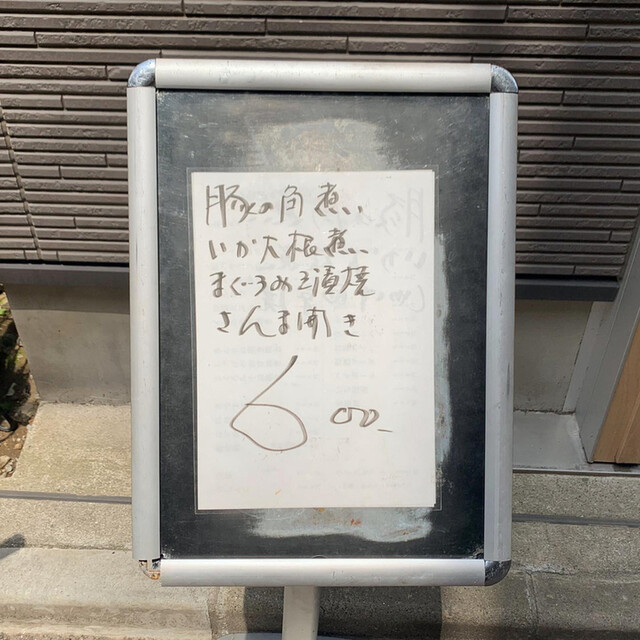 豚の角煮
いか大根煮
まぐろのみそ漬焼
さんま開き
600